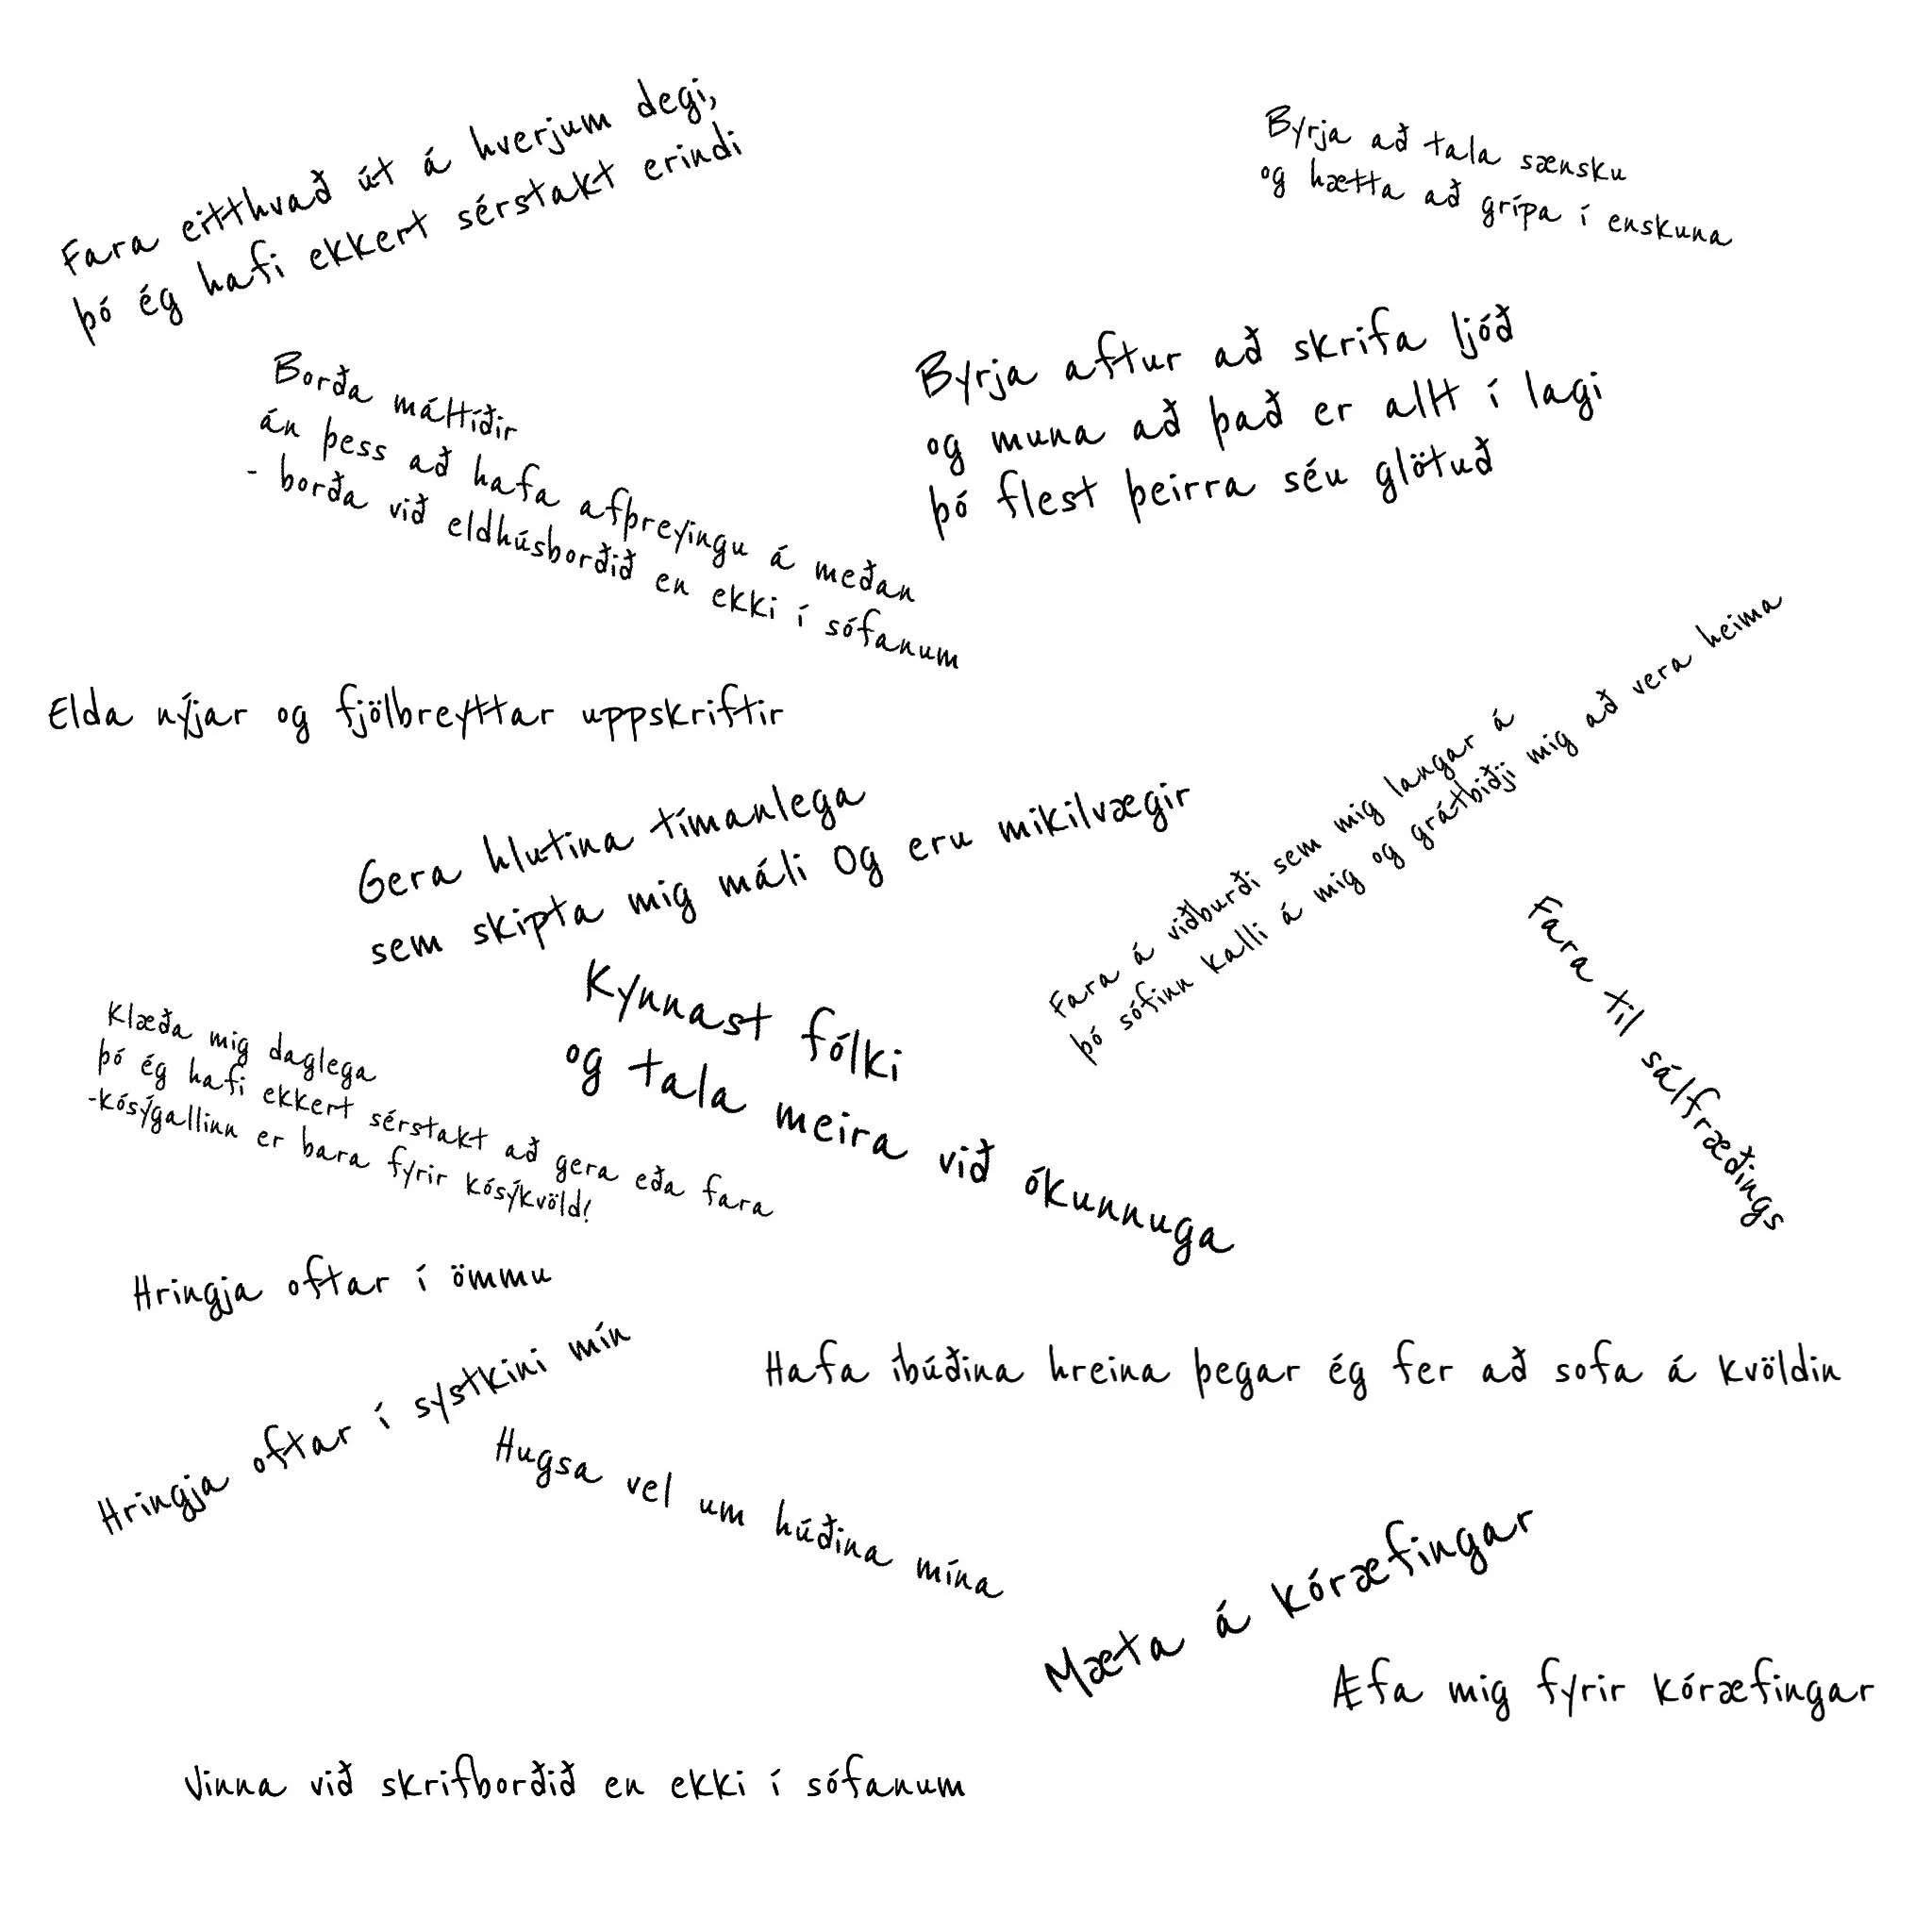 Fara eitthvað út á hverjum degi,
þó ég hafi ekkert sérstakt erindi
Byrja að tala sænsku
og hætta að grípa í enskuna
Borða máltíðir
án þess að hafa afþreyingu á meðan
- borða við eldhúsborðið en ekki í sófanum
Byrja aftur að skrifa ljóð
og muna að það er allt í lagi
þó flest þeirra séu glötuð
Elda nýjar og fjölbreyttar uppskriftir
Gera hlutina tímanlega
sem skipta mig máli Og eru mikilvægir
Fara á viðburði sem mig langar á
þó sófinn kalli á mig og grátbiðji mig að vera heima
Fara til sálfræðings
Kynnast fólki
og tala meira við ókunnuga
Klæða mig daglega
þó ég hafi ekkert sérstakt að gera eða fara
-kósýgallinn er bara fyrir kósýkvöld!
Hringja oftar í ömmu
Hringja oftar í systkini mín
Hafa íbúðina hreina þegar ég fer að sofa á kvöldin
Hugsa vel um húðina mína
Mæta á kóræfingar
Æfa mig fyrir kóræfingar
Vinna við skrifborðið en ekki í sófanum